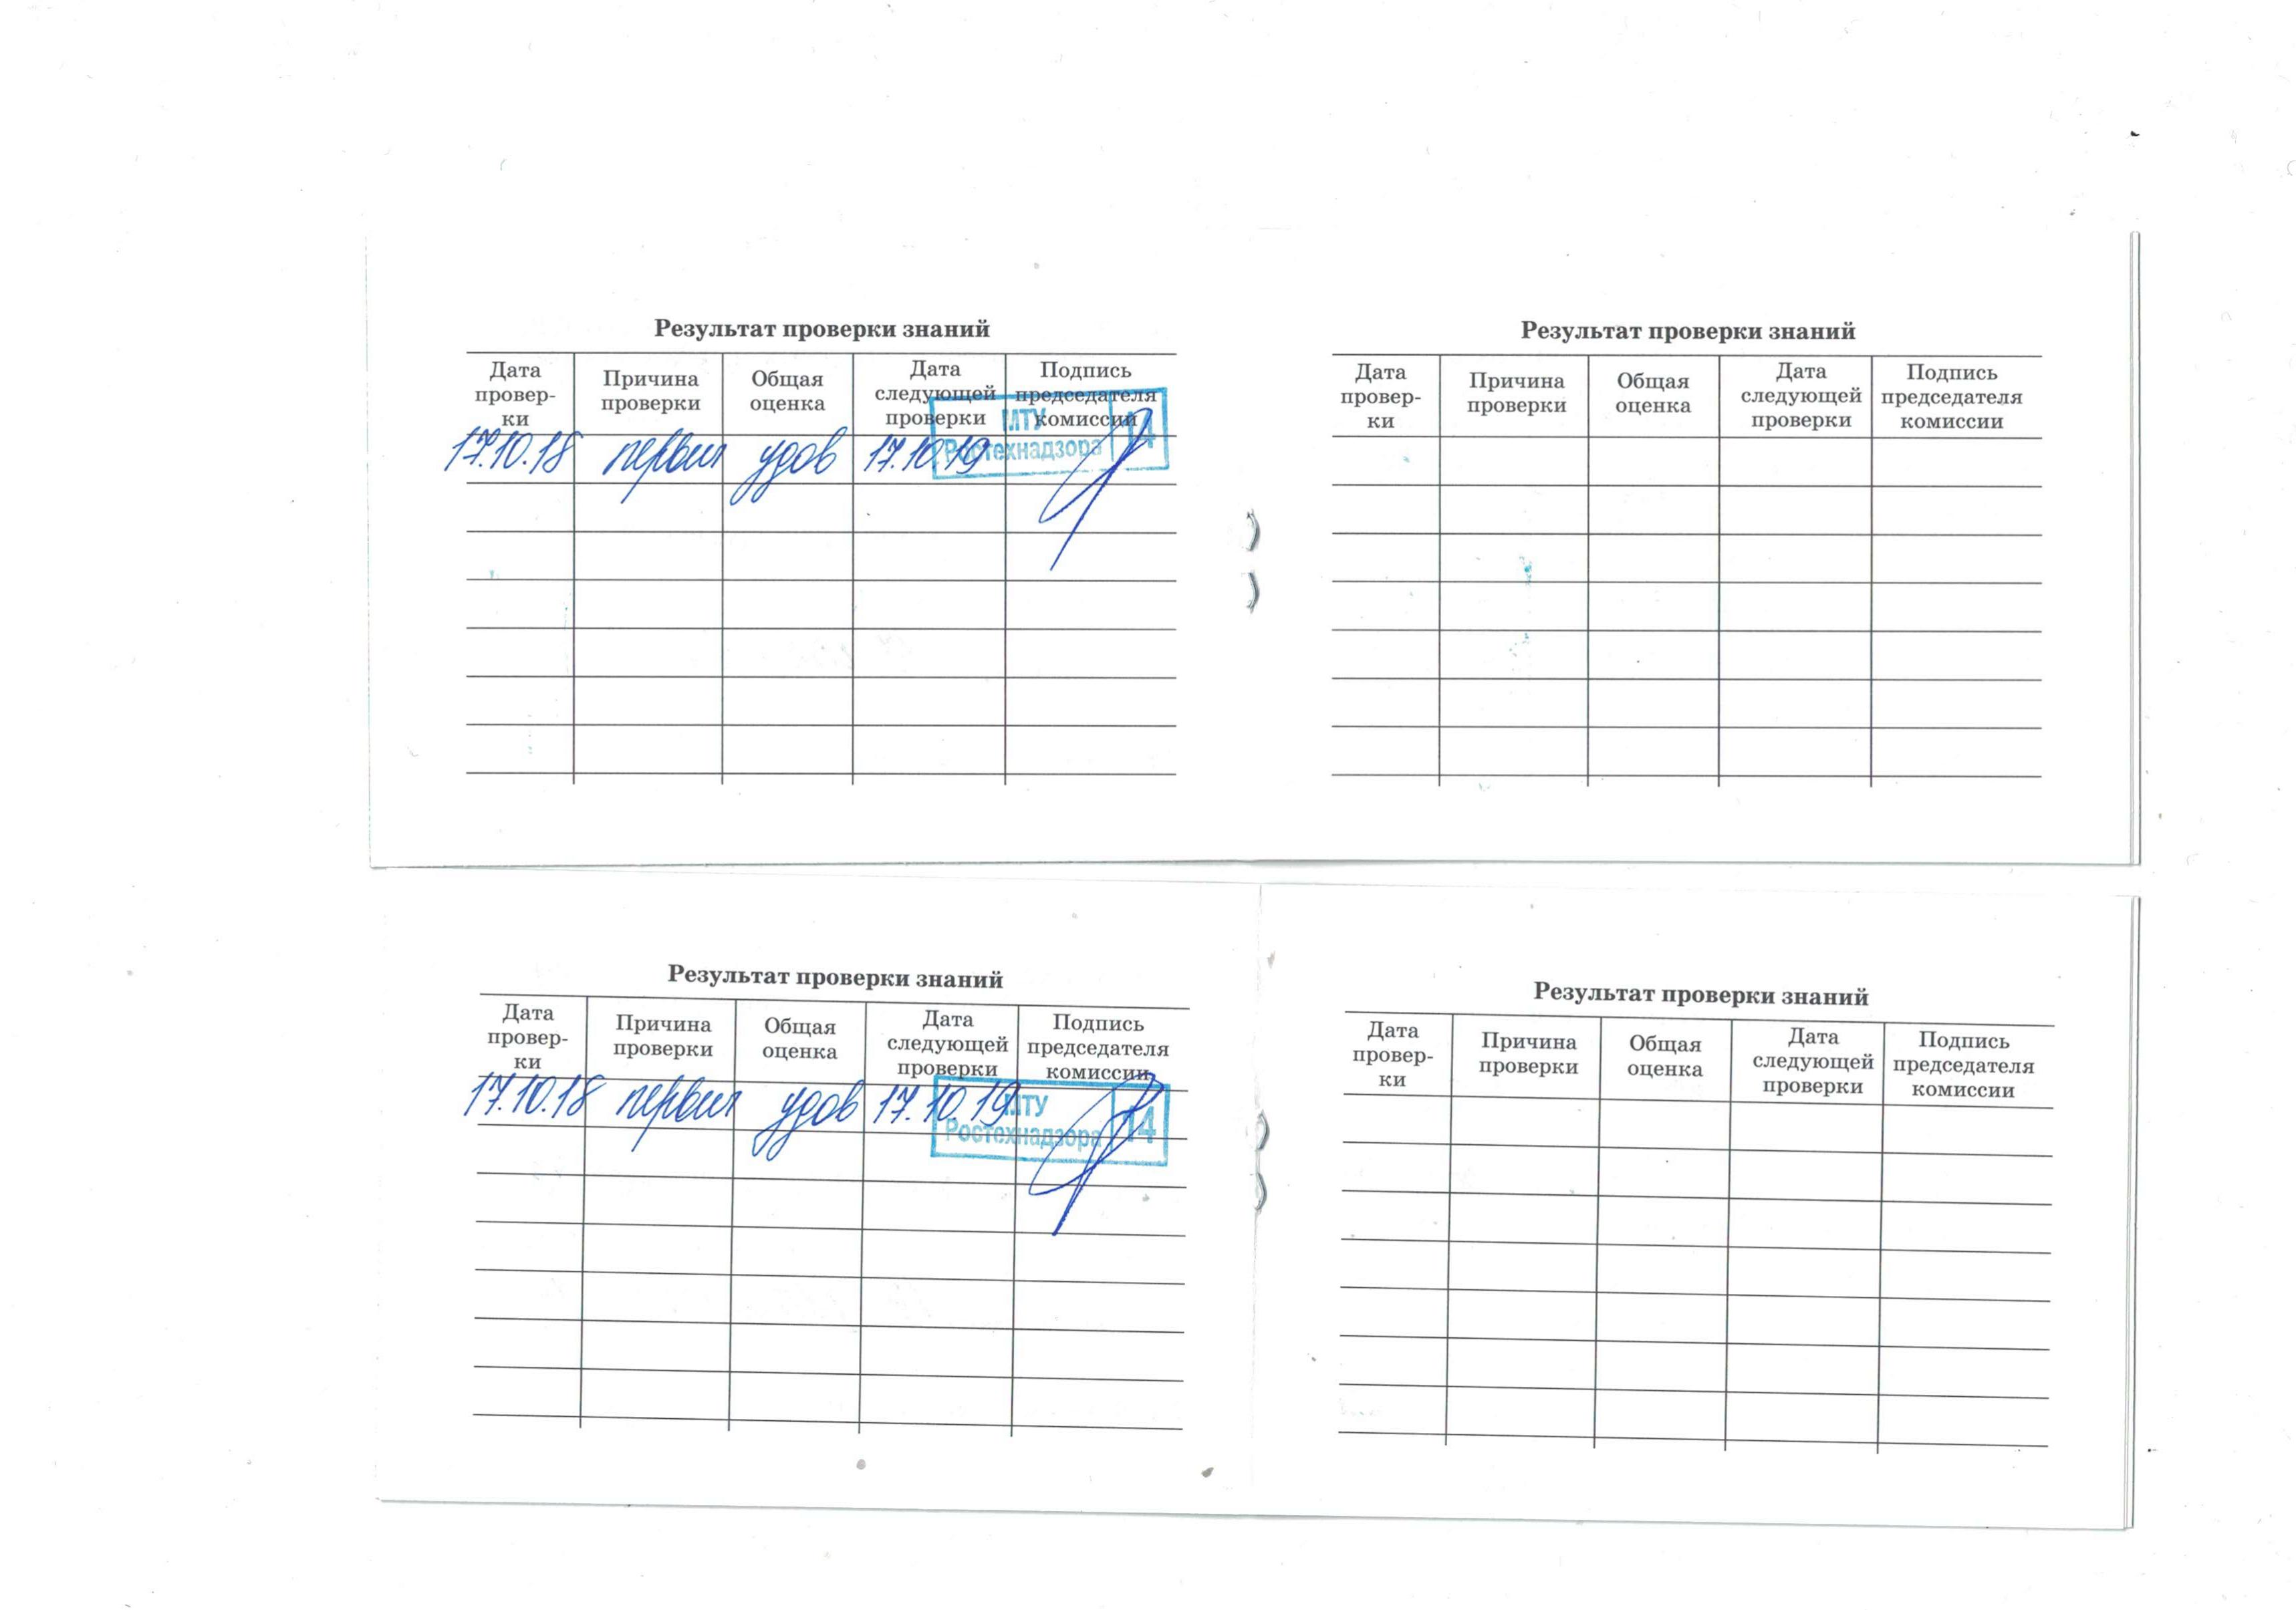 Результат проверки знаний
Дата провер-ки Причина проверки Общая оценка Дата следующей проверки Подпись председателя комиссии
17.10.18 первич удов 17.10.19
МТУ
Ростехнадзора 14
Результат проверки знаний
Дата провер-ки Причина проверки Общая оценка Дата следующей проверки Подпись председателя комиссии
Результат проверки знаний
Дата провер-ки Причина проверки Общая оценка Дата следующей проверки Подпись председателя комиссии
17.10.18 первич удов 17.10.19
МТУ
Ростехнадзора 14
Результат проверки знаний
Дата провер-ки Причина проверки Общая оценка Дата следующей проверки Подпись председателя комиссии